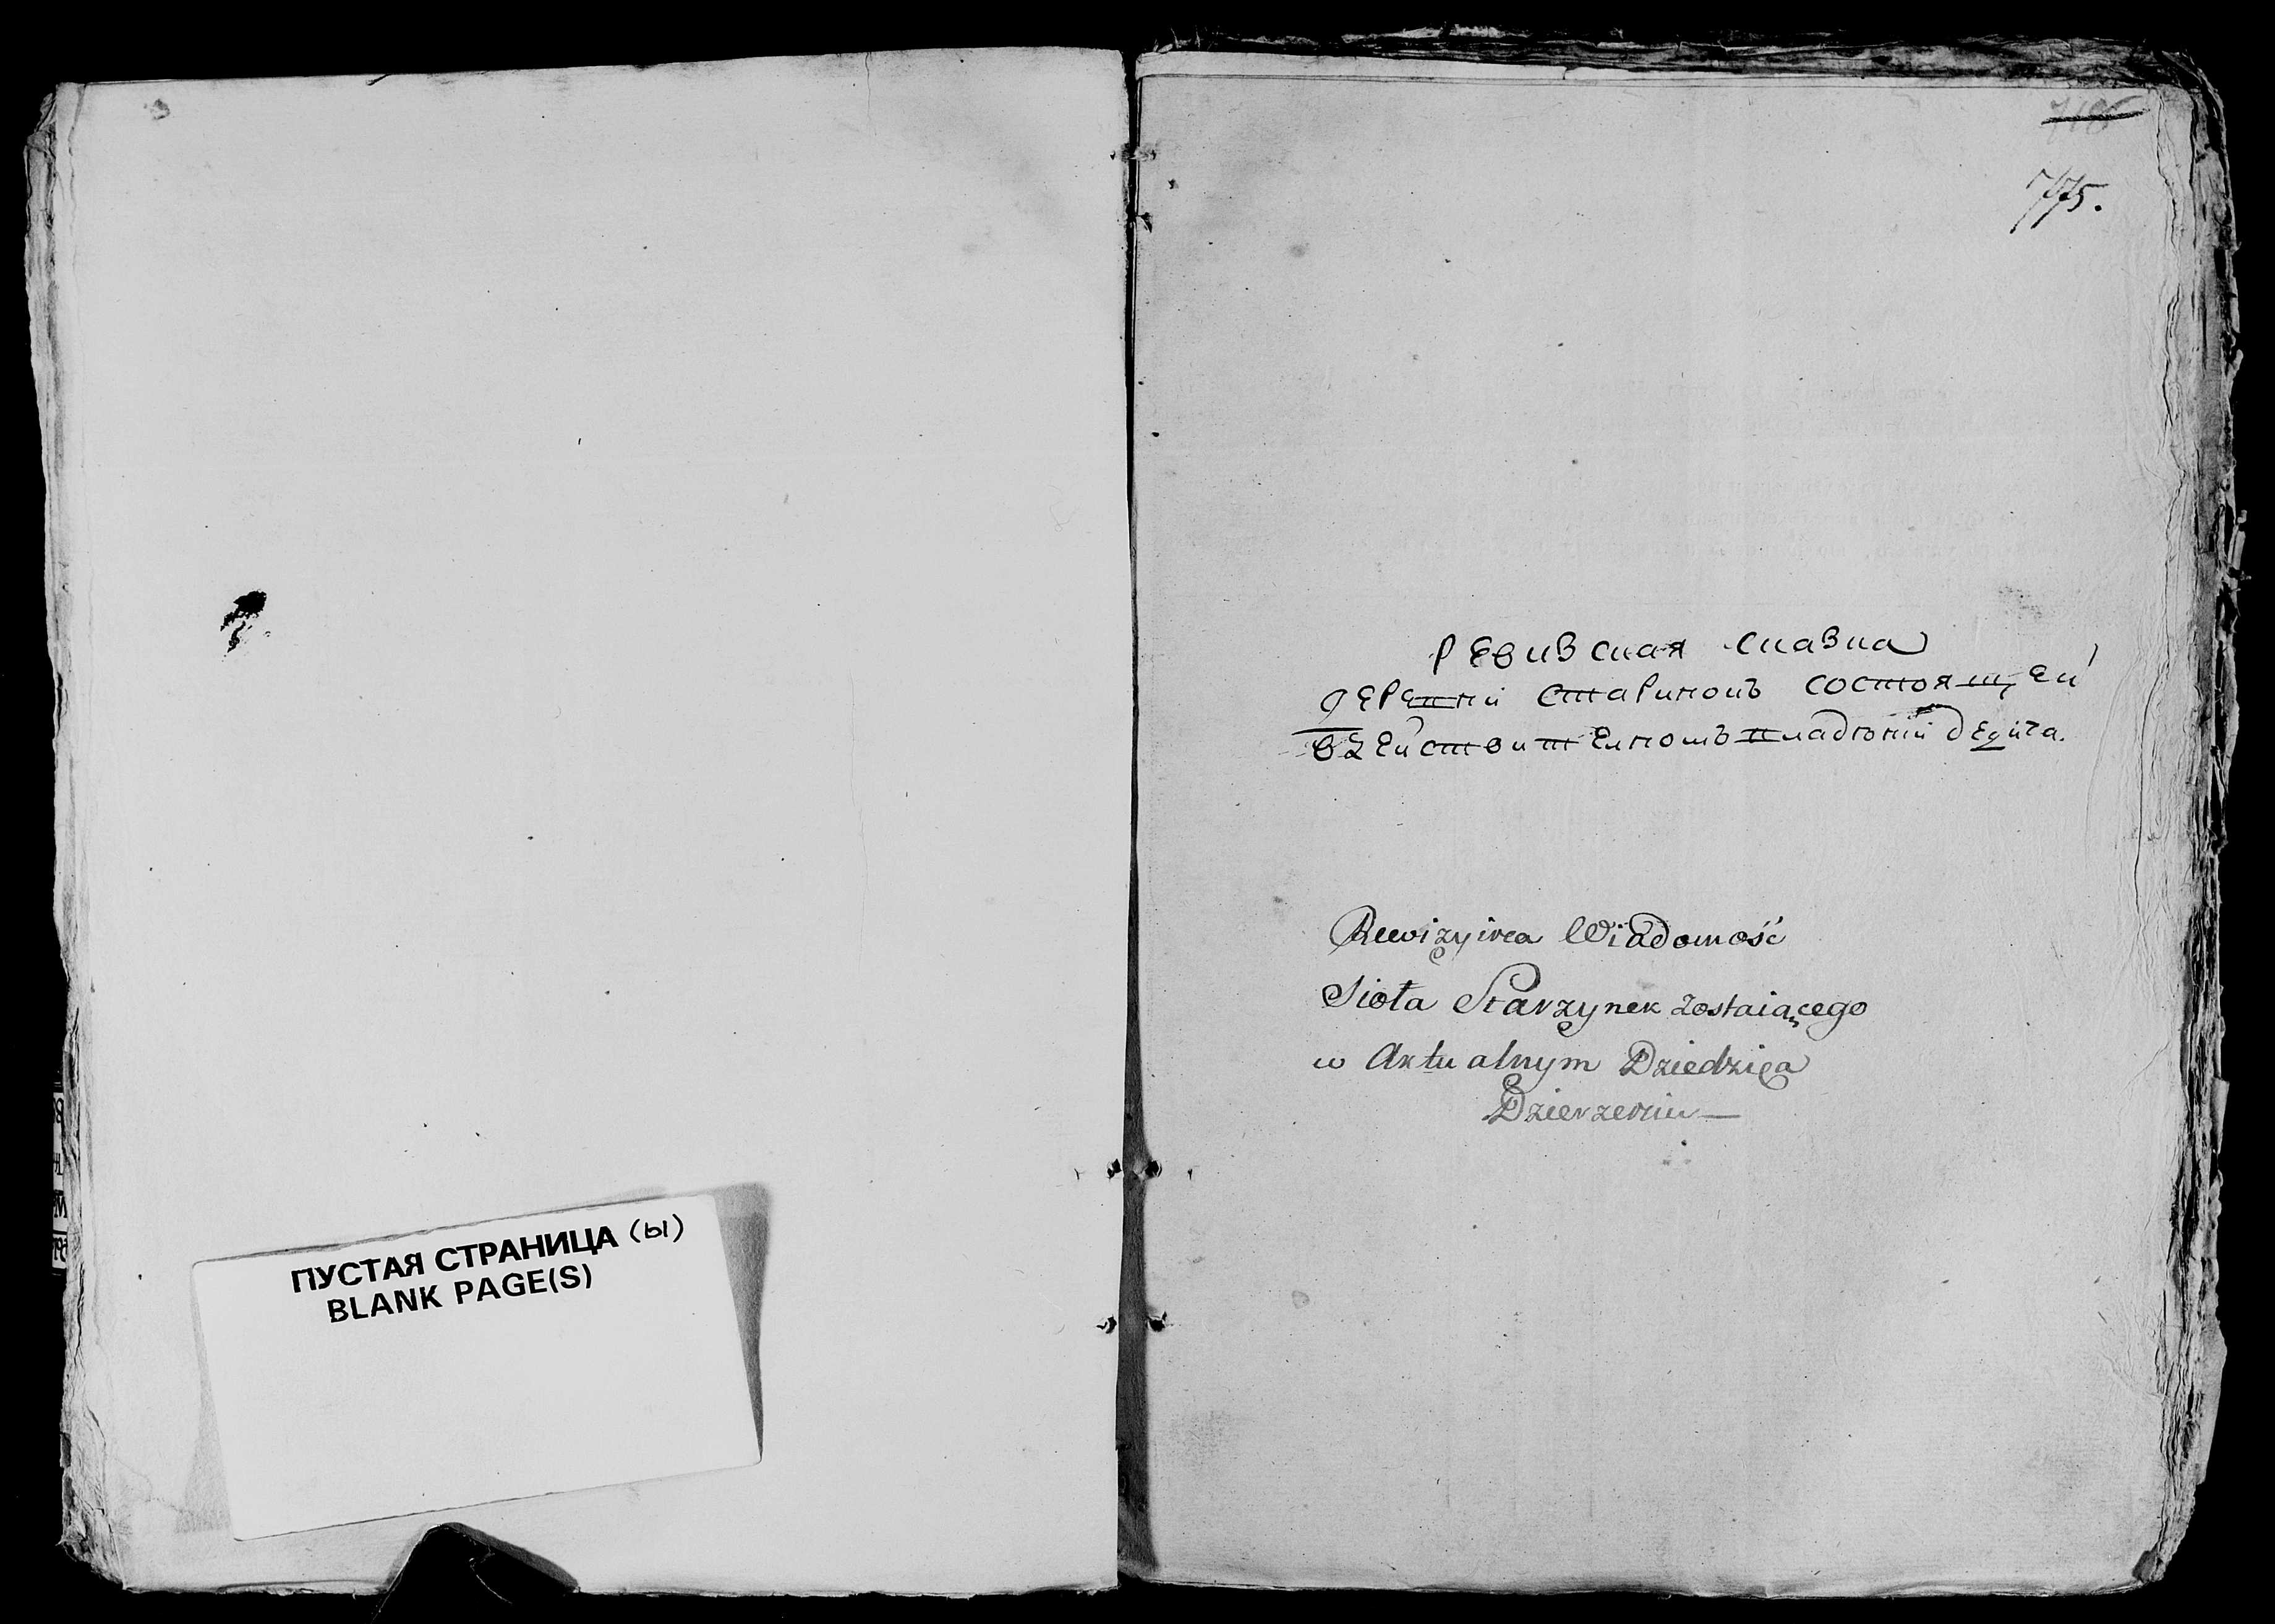 ПУСТАЯ СТРАНИЦА (ы)
BLANK PAGE(S)
718
775.
Ревизская сказка
деревни Старинокъ состоящей
в действителномъ владѣнiи дедича.
Rewizyina Wiadomość
Sioła Starzynek zostaiącego
w Aktualnym Dziedzica
Dzierzeniu